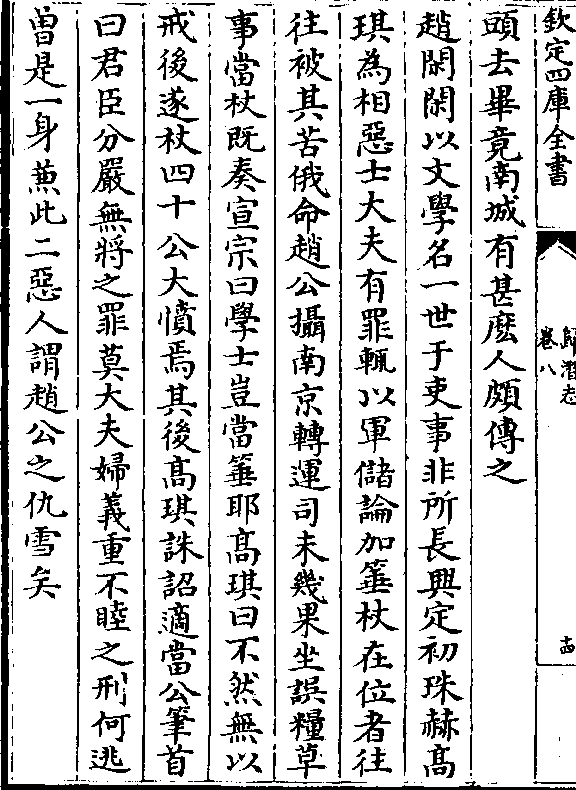 欽定四庫全書
歸潛志
卷八
十四
頭去畢竟南城有甚麽人頗傳之
趙閑閑以文學名一世于吏事非所長興定初珠赫髙
琪為相惡士大夫有罪輒以軍儲論加箠杖在位者往
往被其苦俄命趙公攝南京轉運司未幾果坐誤糧草
事當杖既奏宣宗曰學士豈當箠耶髙琪曰不然無以
戒後遂杖四十公大憤焉其後髙琪誅詔適當公筆首
曰君臣分嚴無將之罪莫大夫婦義重不睦之刑何逃
曽是一身蕪此二惡人謂趙公之仇雪矣